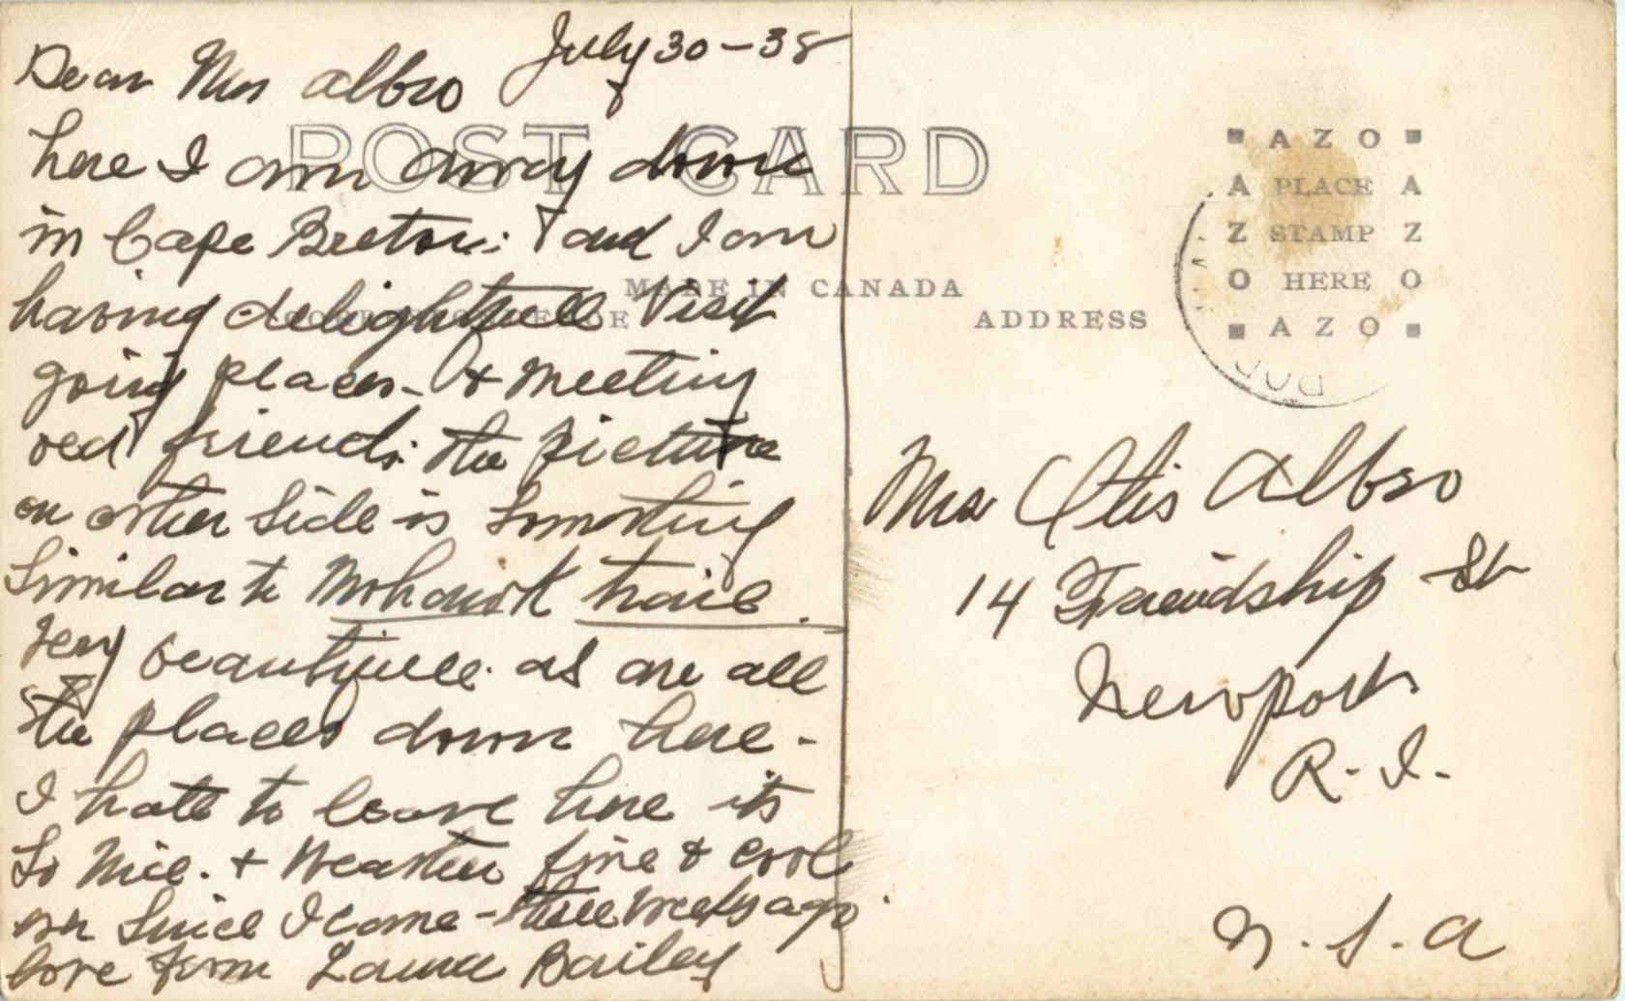 July 30-38
Dear Mrs Albro
here I am away down
in Cape Breton: and I am
having delightfull Visit
going places - & meeting
old friends. the picture
on other side is Something
Similar to Mohawk trail.
Very beautifull. as are all
the places down here -
I hate to leave here its
So Nice. & Weather fine & cool
ever Since I came - three weeks ago.
love from Laura Bailey
POST CARD
MADE IN CANADA
CORRESPONDENCE
ADDRESS
AZO
A PLACE A
Z STAMP Z
O HERE O
AZO
Mrs Otis Albro
14 Friendship St
Newport
R. I.
U. S. A